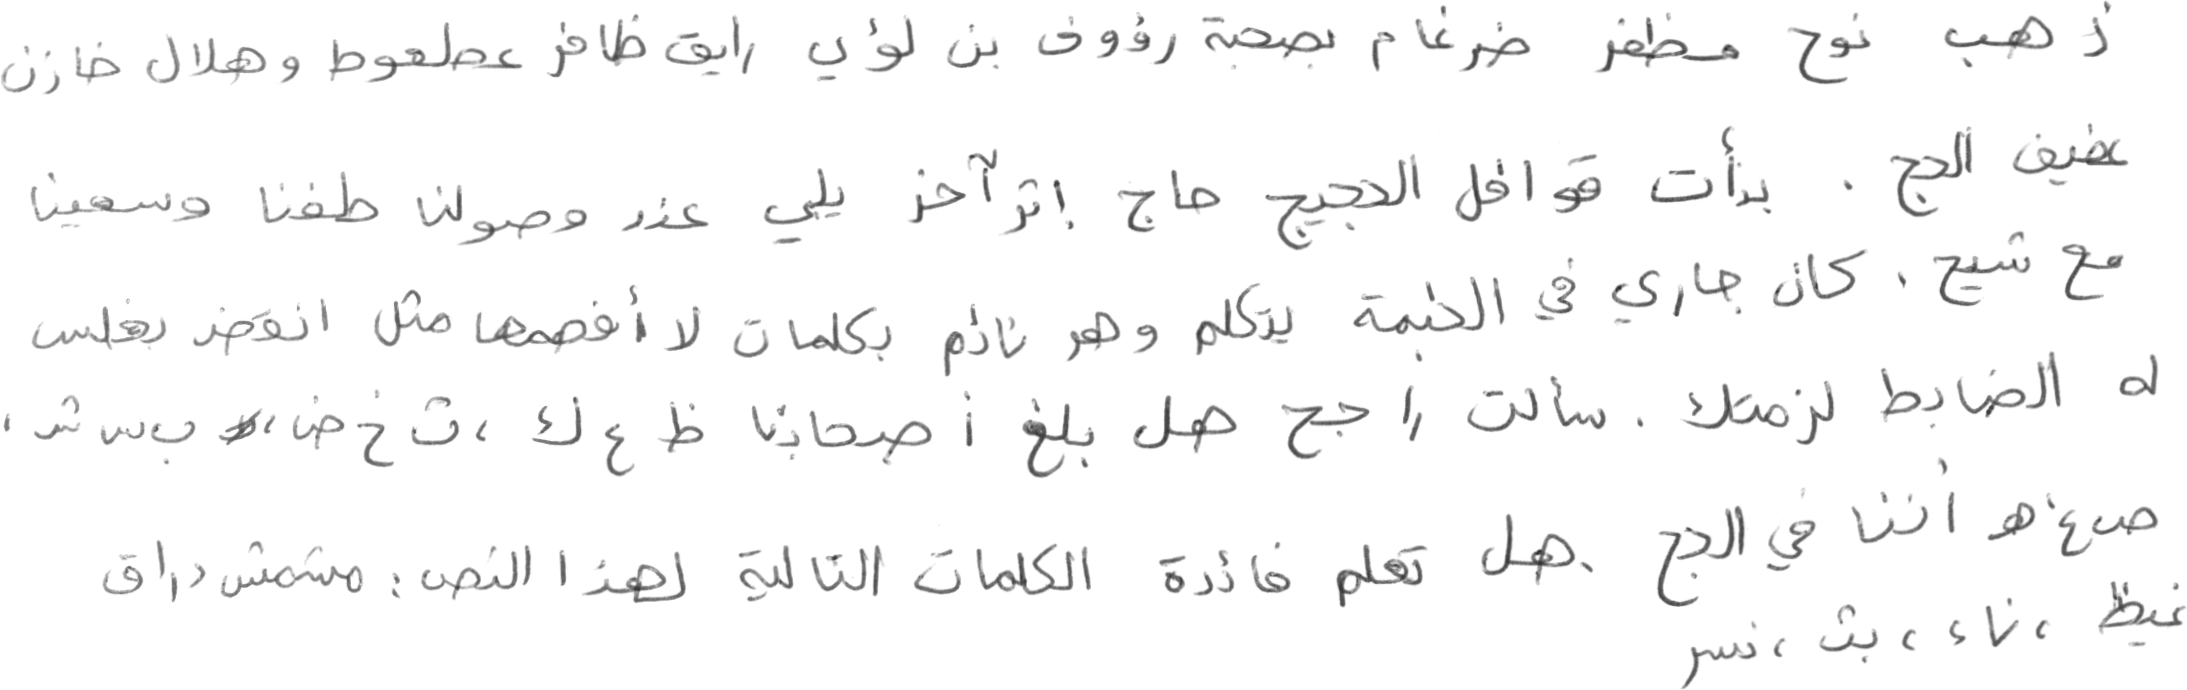 ذهب نوح مظفر ضرغام بصحبة رؤوف بن لؤي رايق ظافر عطعوط وهلال خازن
عفيف الحج . بدأت قوافل الحجيج حاج إثر آخر يلي عند وصولنا طفنا وسعينا
مع شيخ . كان جاري في الخيمة يتكلم وهو نائم بكلمات لا أفهمها مثل انقض بغلس
له الضابط لزمتك . سألت راجح هل بلغ أصحابنا ظ ع ك ، ث خ ض ، ب س ش ،
ص غ ه أننا في الحج . هل تعلم فائدة الكلمات التالية لهذا النص : مشمش دراق
غيظ ، ناء ، بث ، نسر